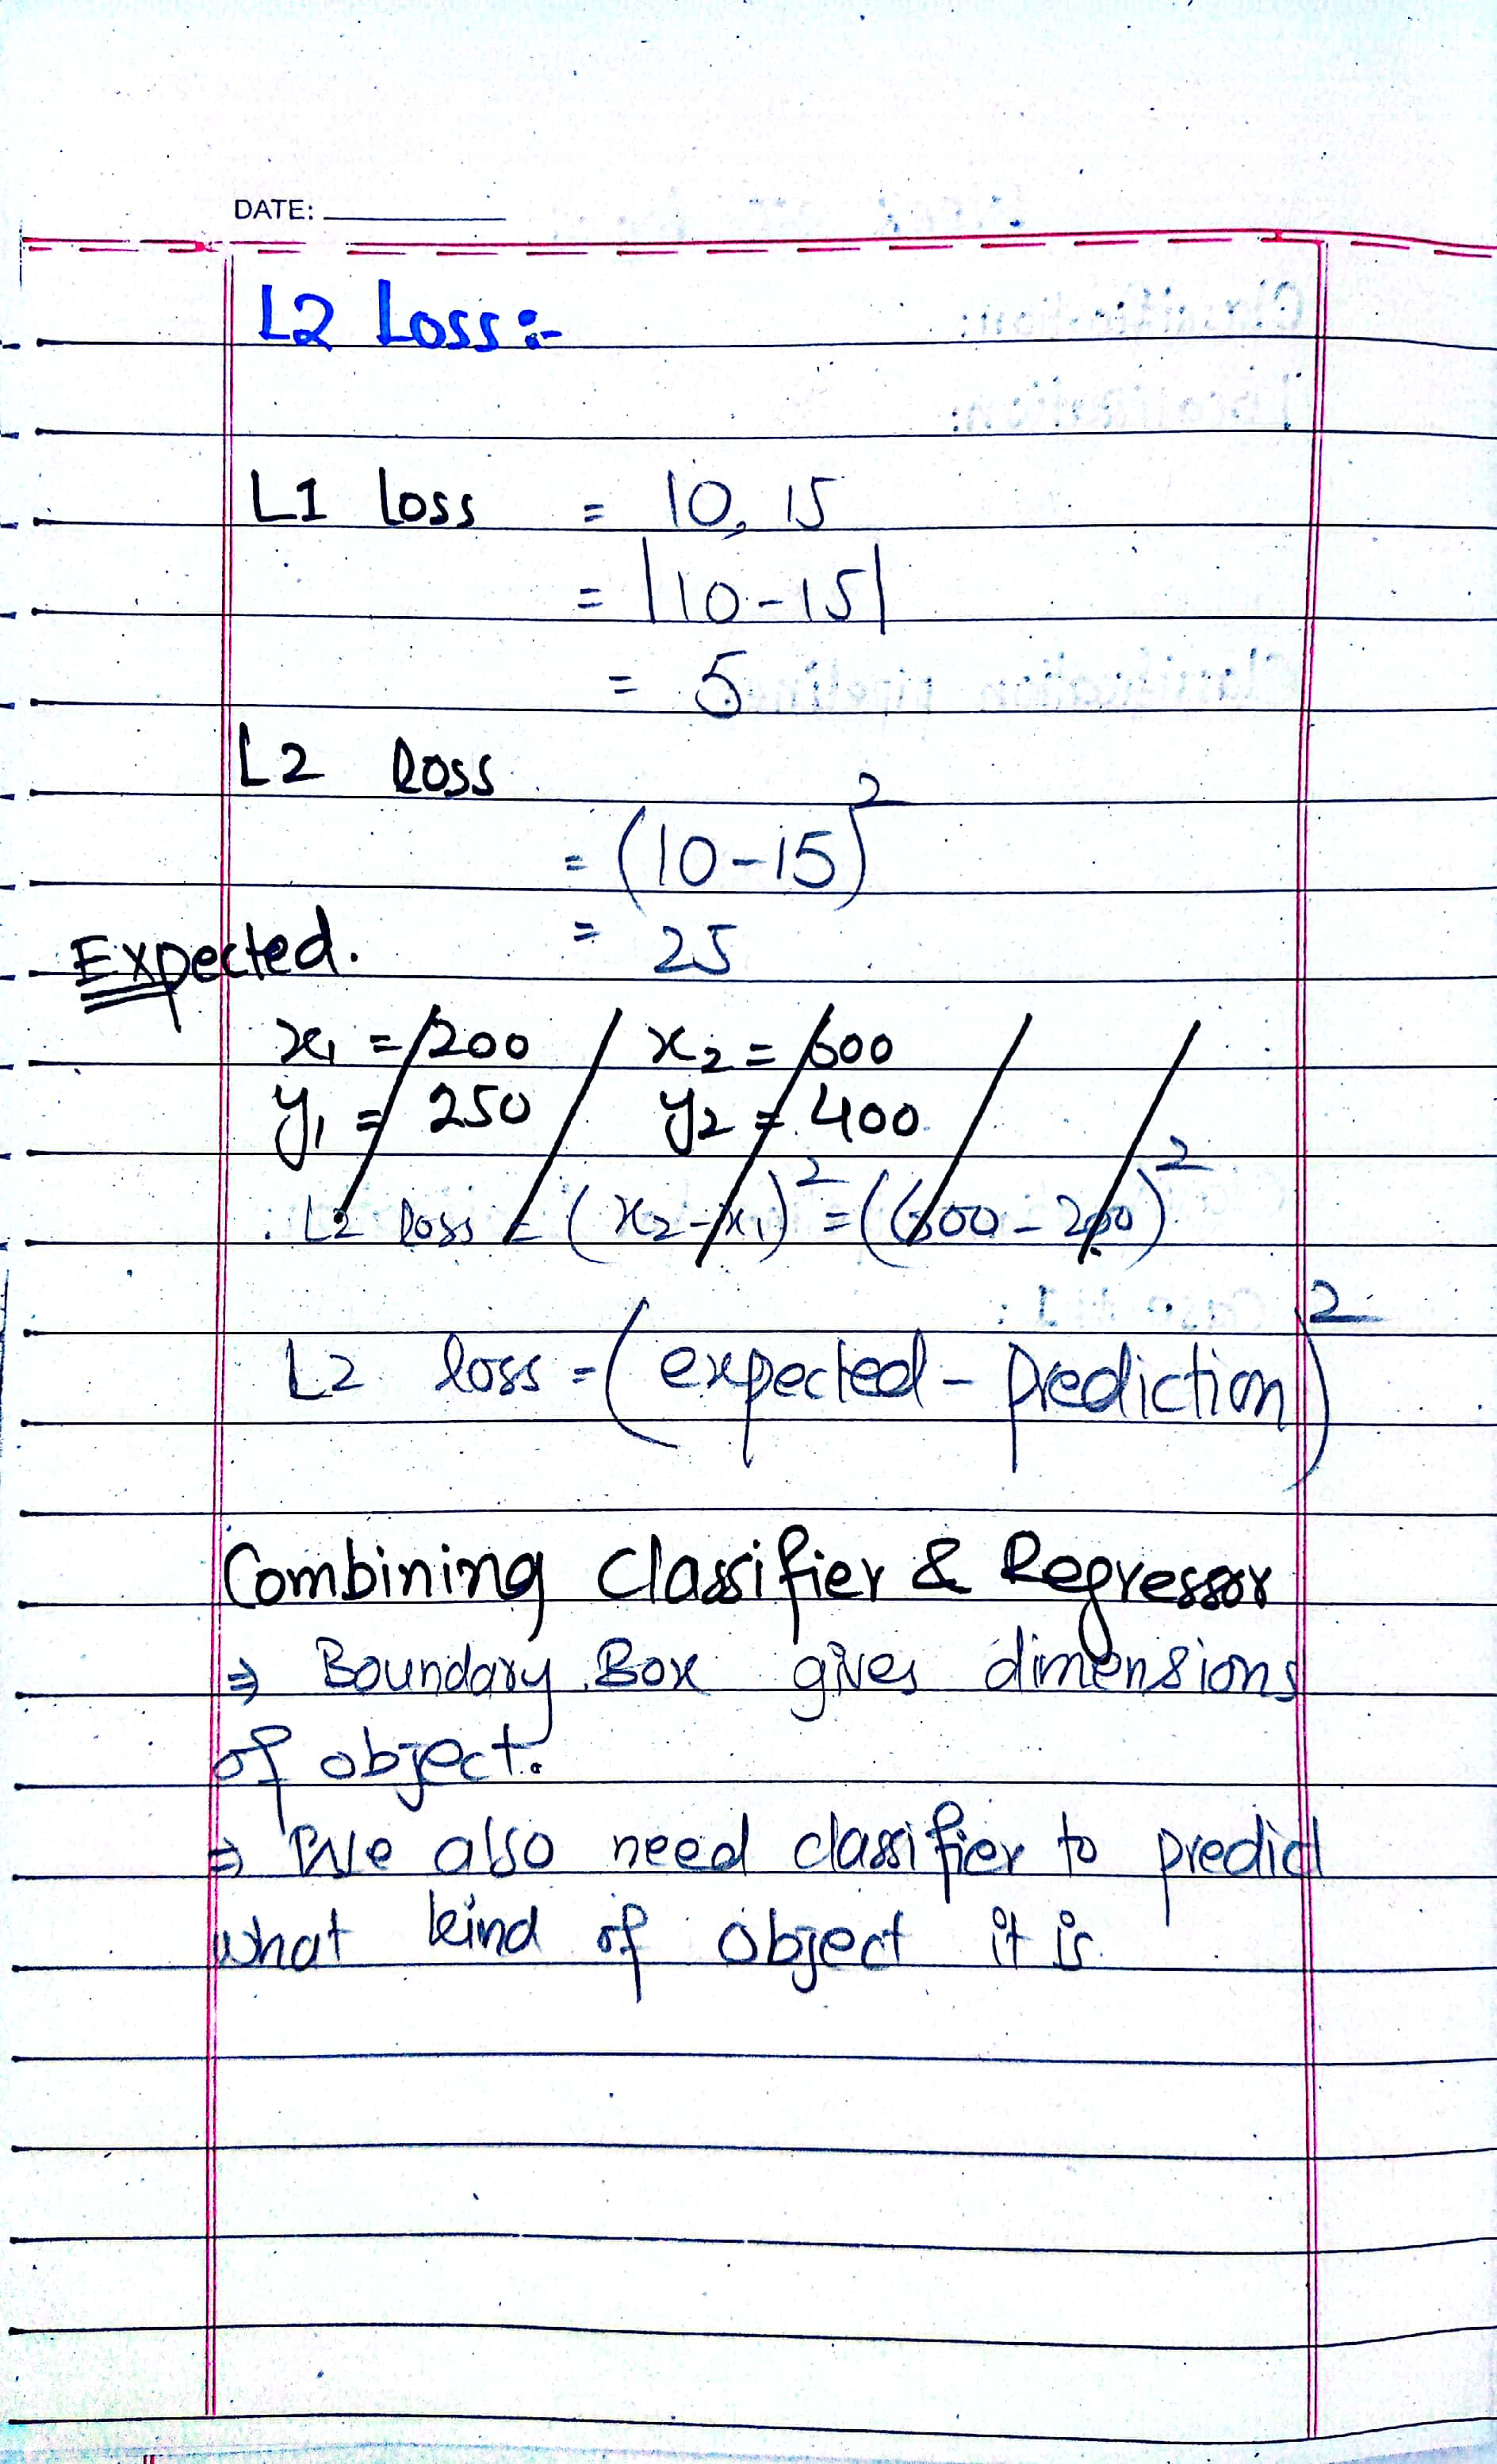 DATE:
L2 Loss:-
L1 loss = 10, 15
= |10-15|
= 5
L2 loss
= (10-15)²
= 25
Expected.
x₁ = 200 x₂ = 600
y₁ = 250 y₂ = 400
L2 loss = (x₂-x₁)² = (600-200)²
L2 loss = (expected - prediction)²
Combining Classifier & Regressor
⇒ Boundary Box gives dimensions
of object.
⇒ We also need classifier to predict
what kind of object it is